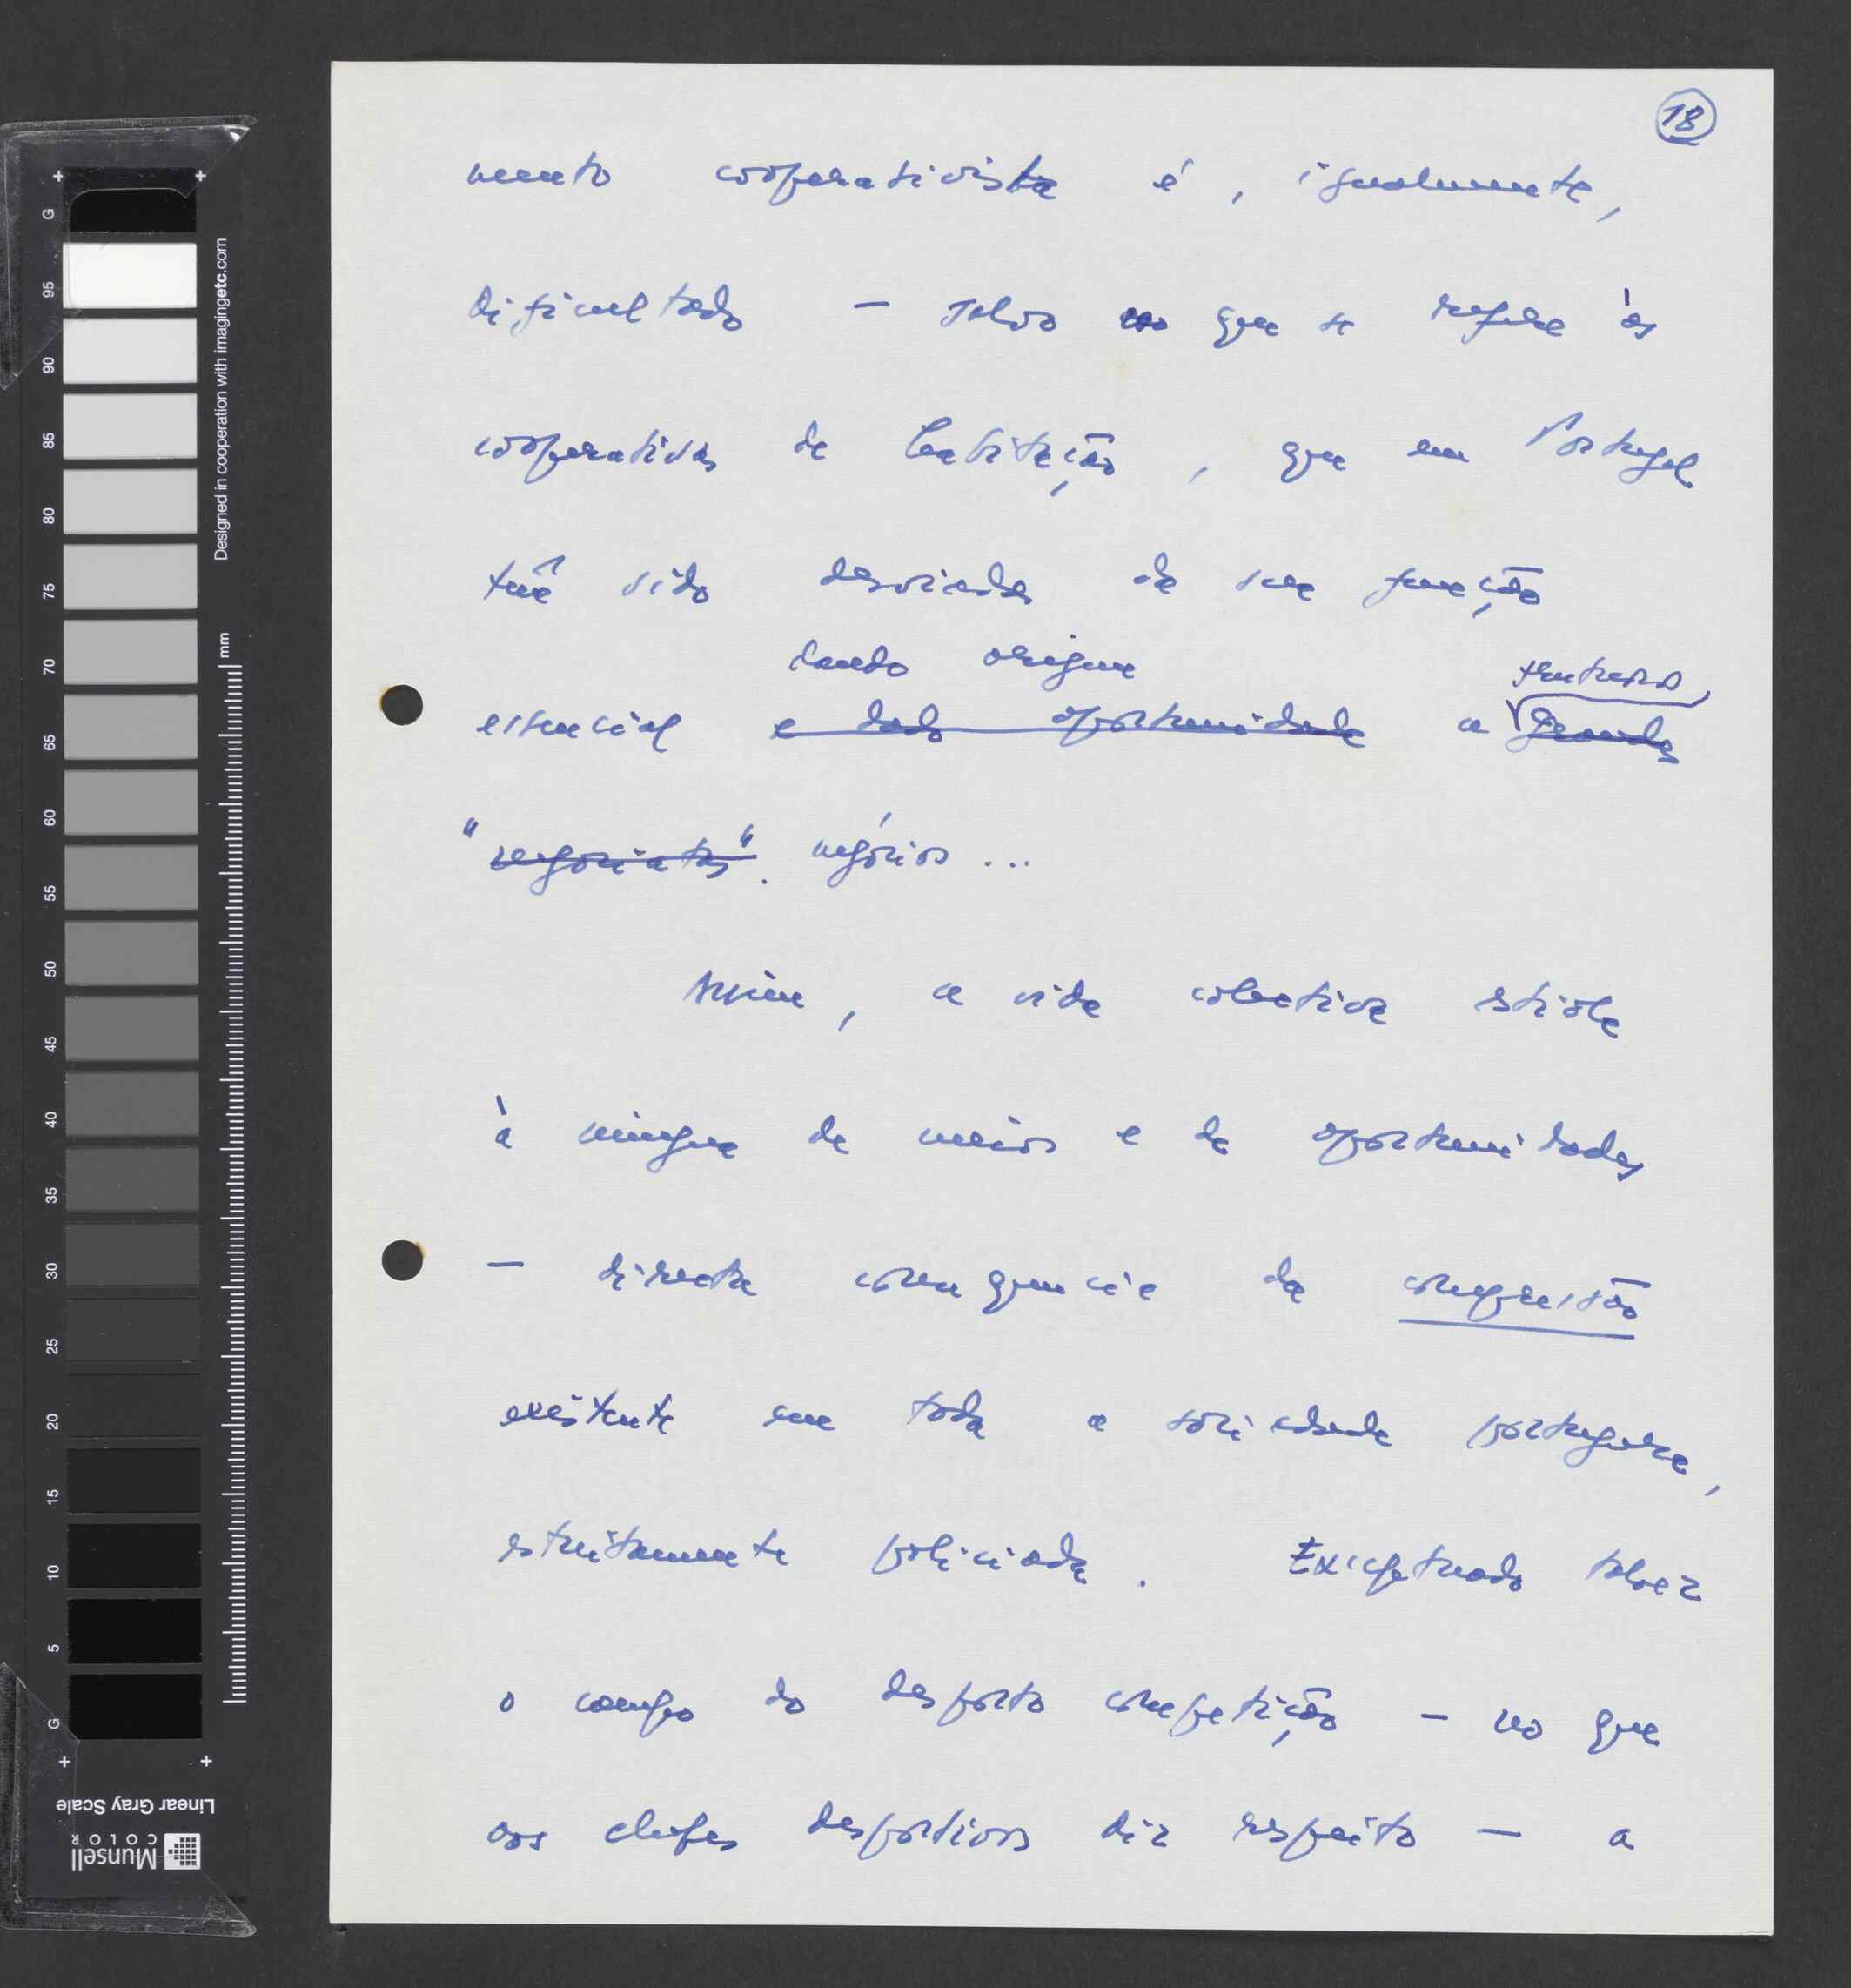 18
mento cooperativista é, igualmente,
dificultado — salvo no que se refere às
cooperativas de habitação, que em Portugal
têm sido desviadas da sua função
dando origem
essencial e dado oportunidade a grandes
"negociatas". negócios...
Assim, a vida colectiva estiola
à míngua de meios e de oportunidades
— directa consequência da compressão
existente em toda a sociedade portuguesa,
estreitamente policiada. Exceptuado talvez
o campo do desporto competição — no que
aos chefes desportivos diz respeito — a
G 95 90 85 80 75 70 65 60 55 50 45 40 35 30 25 20 15 10 5 G
mm
Designed in cooperation with imagingetc.com
Linear Gray Scale
Munsell
COLOR